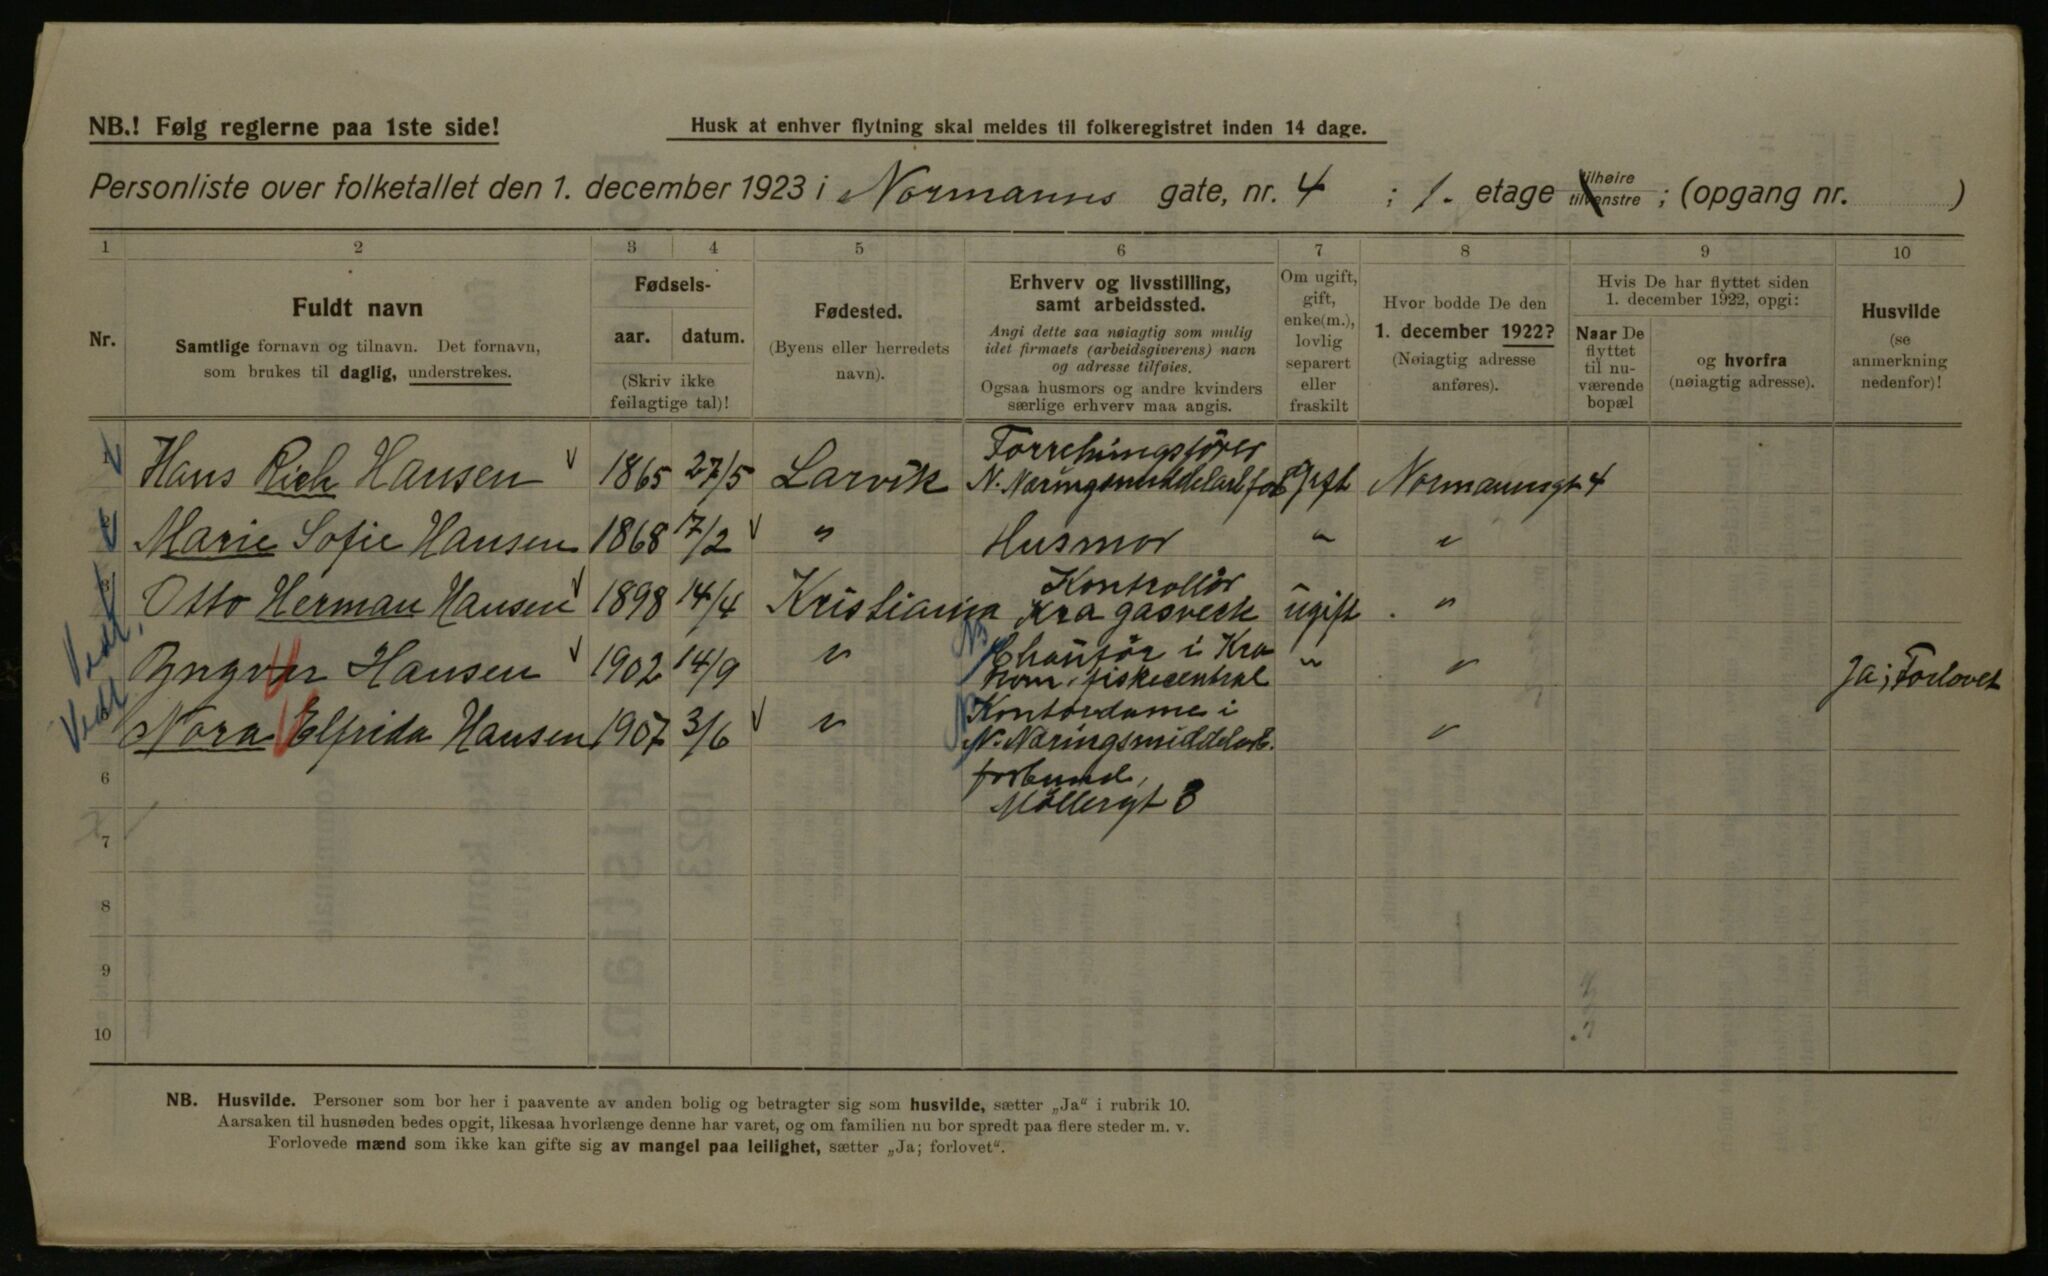 NB.! Følg reglerne paa 1ste side!
Husk at enhver flytning skal meldes til folkeregistret inden 14 dage.
Personliste over folketallet den 1. december 1923 i Normanns gate, nr. 4 ; 1. etage tilhøire tilvenstre ; (opgang nr. )
1 2 3 4 5 6 7 8 9 10
Nr.
Fuldt navn
Samtlige fornavn og tilnavn. Det fornavn,
som brukes til daglig, understrekes.
Fødsels-
aar. datum.
(Skriv ikke
feilagtige tal)!
Fødested.
(Byens eller herredets
navn).
Erhverv og livsstilling,
samt arbeidssted.
Angi dette saa nøiagtig som mulig
idet firmaets (arbeidsgiverens) navn
og adresse tilføies.
Ogsaa husmors og andre kvinders
særlige erhverv maa angis.
Om ugift,
gift,
enke(m.),
lovlig
separert
eller
fraskilt
Hvor bodde De den
1. december 1922?
(Nøiagtig adresse
anføres).
Hvis De har flyttet siden
1. december 1922, opgi:
Naar De
flyttet
til nu-
værende
bopæl
og hvorfra
(nøiagtig adresse).
Husvilde
(se
anmerkning
nedenfor)!
Forretningsfører
Hans Rich Hansen 1865 27/5 Larvik N. Næringsmiddelarb.for Gift Normannsgt 4
Marie Sofie Hansen 1868 17/2 " Husmor " "
Kontrollör
Otto Herman Hansen 1898 14/4 Kristiania Kra gasverk ugift "
Vedt.
NB Chauför i Kra
Yngvar Hansen 1902 14/9 " kom. fiskecentral " " Ja; Forlovet
Vedt
NB Kontordame i
Nora Elfrida Hansen 1907 3/6 " N. Næringsmiddelarb. "
6 forbund,
Möllergt 3
7
8
9
10
NB. Husvilde. Personer som bor her i paavente av anden bolig og betragter sig som husvilde, sætter „Ja“ i rubrik 10.
Aarsaken til husnøden bedes opgit, likesaa hvorlænge denne har varet, og om familien nu bor spredt paa flere steder m. v.
Forlovede mænd som ikke kan gifte sig av mangel paa leilighet, sætter „Ja; forlovet“.